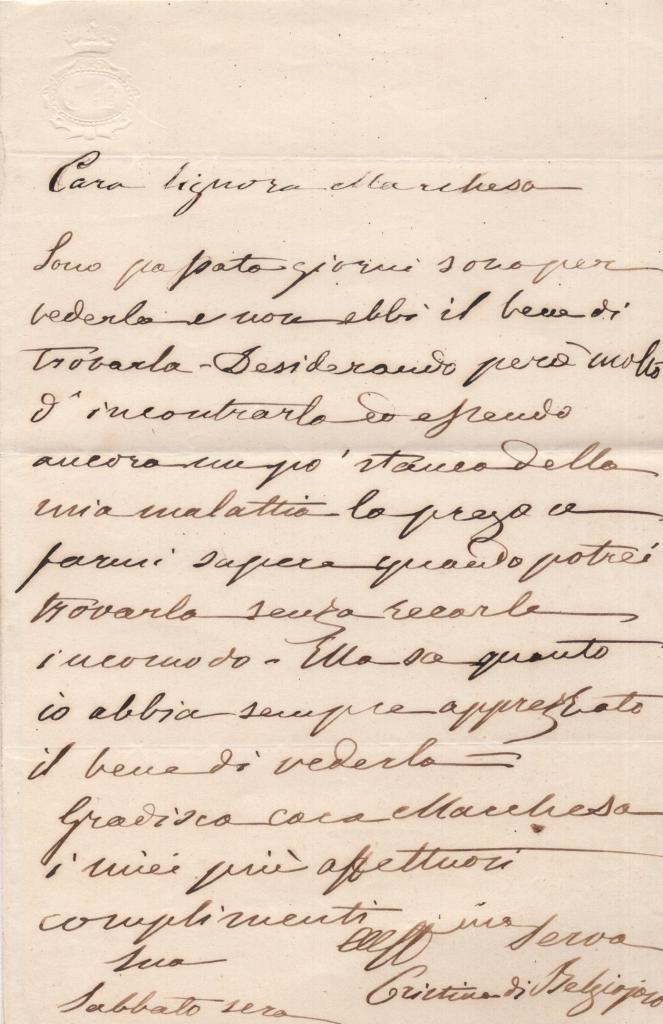 Cara Signora Marchesa
Sono passata giorni sono per
vederla e non ebbi il bene di
trovarla - Desiderando però molto
d'incontrarla ed essendo
ancora un po' stanca della
mia malattia la prego a
farmi sapere quando potrei
trovarla senza recarle
incomodo - Ella sa quanto
io abbia sempre apprezzato
il bene di vederla =
Gradisca cara Marchesa
i miei più affettuosi
complimenti
Sua aff.ma Serva
Cristina di Belgiojoso
Sabbato sera